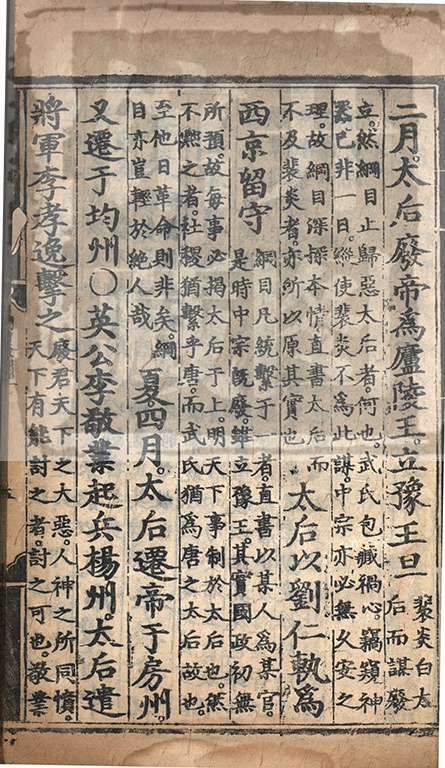 二月。太后廢帝爲廬陵王。立豫王旦
裴炎白太
后而謀廢
立。然綱目止歸惡太后者何也。武氏包藏禍心。竊窺神
器。已非一日。縱使裴炎不爲此謀。中宗亦必無久安之
理。故綱目深探本情。直書太后而
不及裴炎者。亦所以原其實也
太后以劉仁軌爲
西京留守
綱目凡統繫于一者。直書以某人爲某官。
是時中宗旣廢。雖立豫王。其實國政初無
所預。故每事必揭太后于上。明天下事制於太后也。然
不黜之者。社稷猶繫乎唐。而武氏猶爲唐之太后故也。
至他日革命則非矣。綱
目亦豈輕於絶人哉
夏四月。太后遷帝于房州。
又遷于均州〇英公李敬業起兵楊州。太后遣
將軍李孝逸擊之
廢君天下之大惡。人神之所同憤。
天下有能討之者。討之可也。敬業